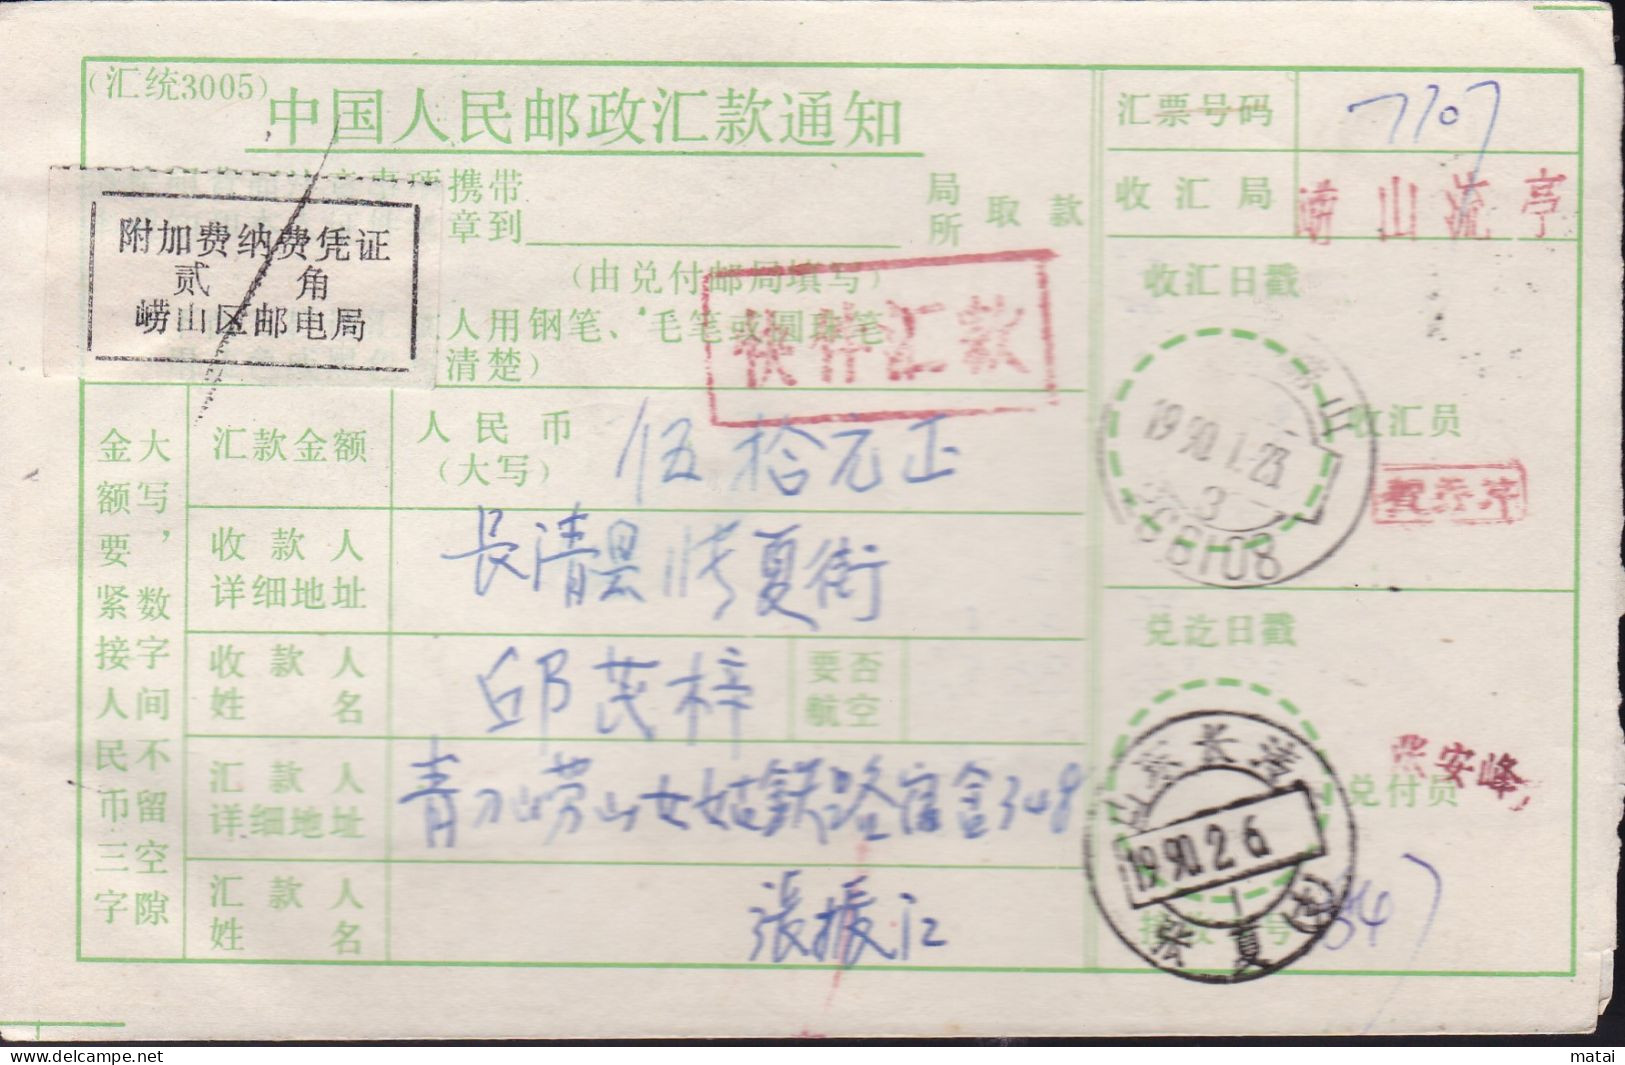 (汇统3005)
中国人民邮政汇款通知
携带
章到 局所 取款
(由兑付邮局填写)
人用钢笔、毛笔或圆珠笔
清楚)
附加费纳费凭证
贰 角
崂山区邮电局
快件汇款
汇票号码 7707
收汇局 崂山流亭
收汇日戳
1990.1.23
3
266108
收汇员
大写金额要紧接人民币三字
大写,数字间不留空隙
汇款金额 人民币(大写) 伍拾元正
收款人详细地址 长清县张夏街
收款人姓名 邱芪梓 要否航空
汇款人详细地址 青岛崂山女姑铁路宿舍348
汇款人姓名 張振江
兑讫日戳
山东长清
1990.2.6
1
张夏
兑付员
张安峰
matai